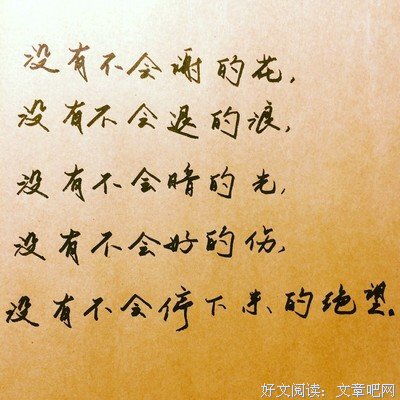 没有不会谢的花,
没有不会退的浪,
没有不会暗的光,
没有不会好的伤,
没有不会停下来的绝望。
好文阅读：文章吧网